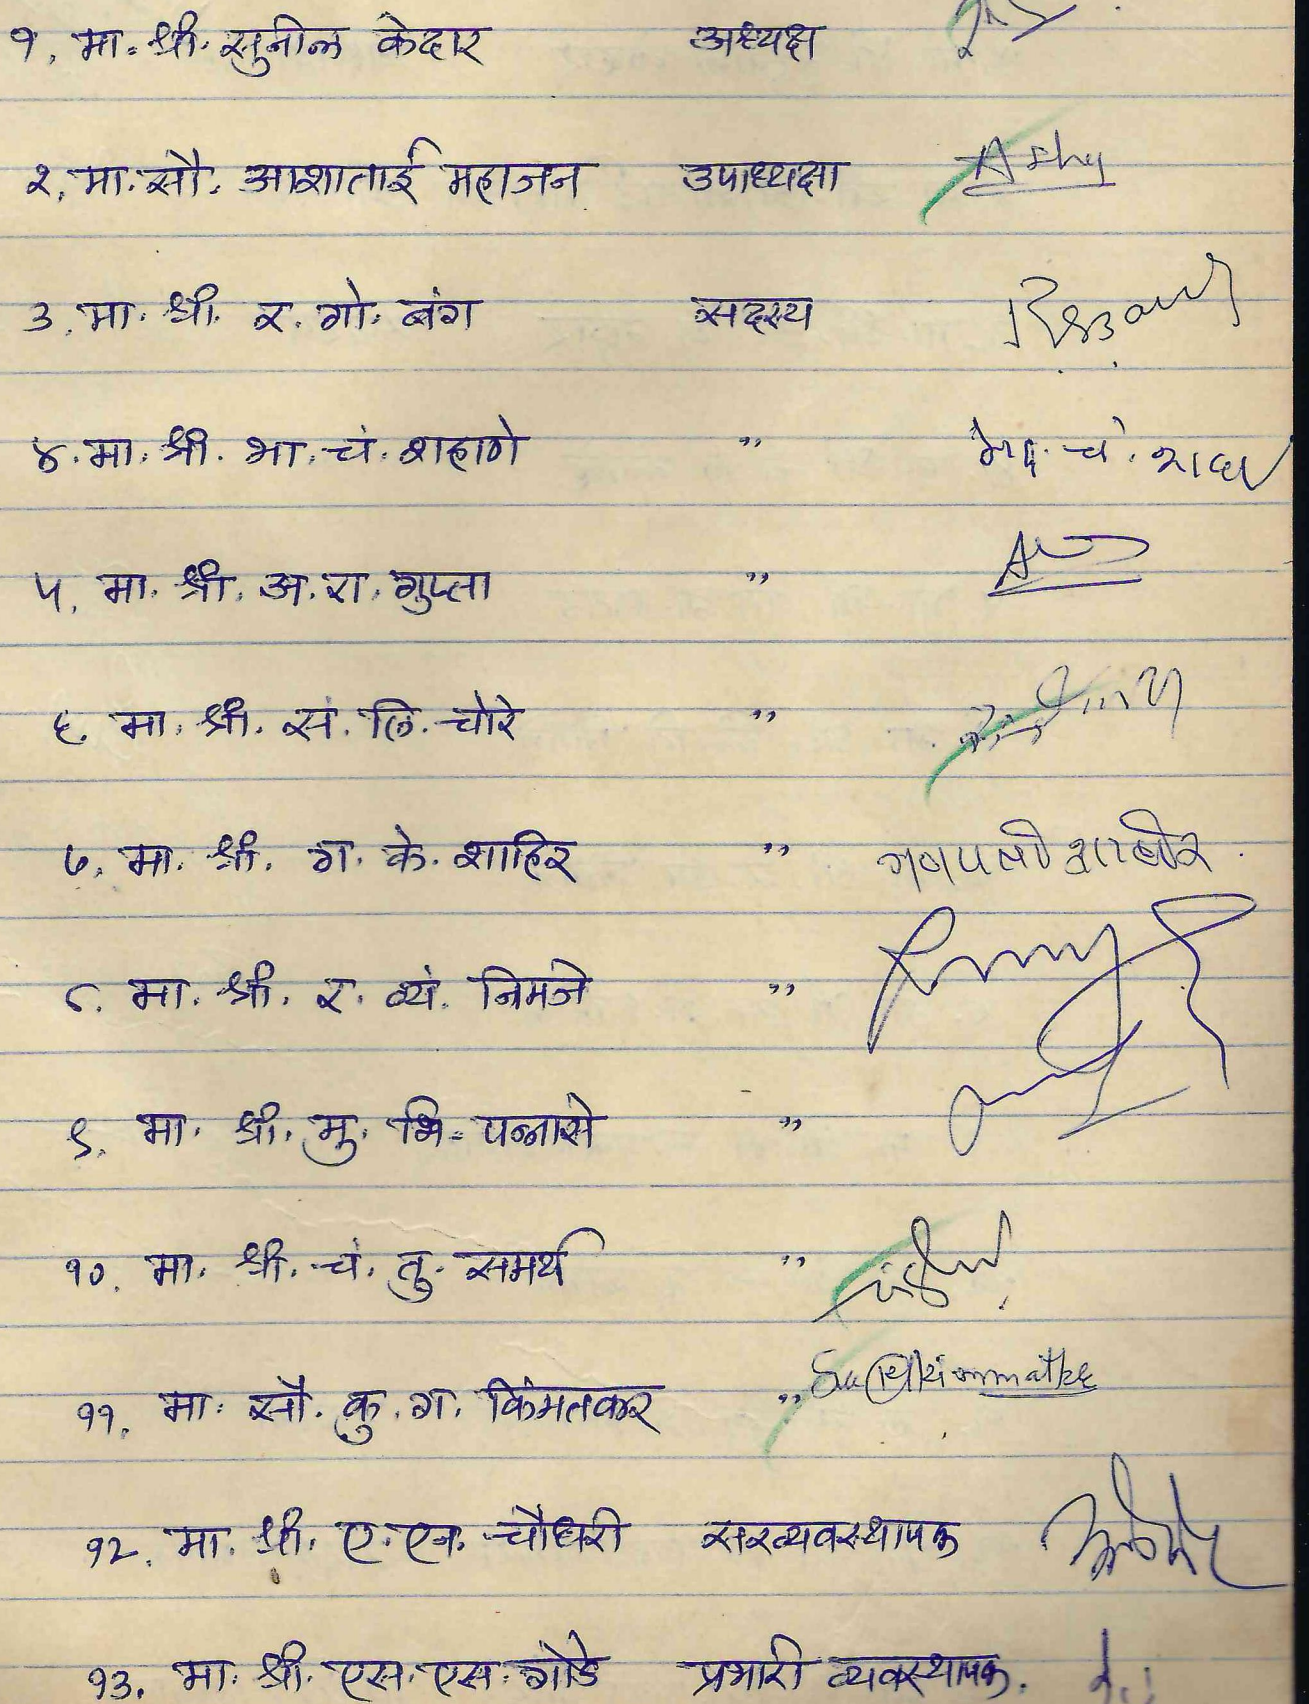 १. मा. श्री. सुनील केदार अध्यक्ष
२. मा. सौ. आशाताई महाजन उपाध्यक्षा
३. मा. श्री. र. गो. बंग सदस्य
४. मा. श्री. भा. चं. शहाणे ,,
५. मा. श्री. अ. रा. गुप्ता ,,
६. मा. श्री. सं. लि. चोरे ,,
७. मा. श्री. ग. के. शाहिर ,, गणपती शाहीर
८. मा. श्री. र. व्यं. निमजे ,,
९. मा. श्री. मु. भि. पन्नासे ,,
१०. मा. श्री. चं. तु. समर्थ ,,
११. मा. सौ. कु. ग. किंमतकर ,,
१२. मा. श्री. ए. एन. चौधरी सरव्यवस्थापक
१३. मा. श्री. एस. एस. गोडे प्रभारी व्यवस्थापक.